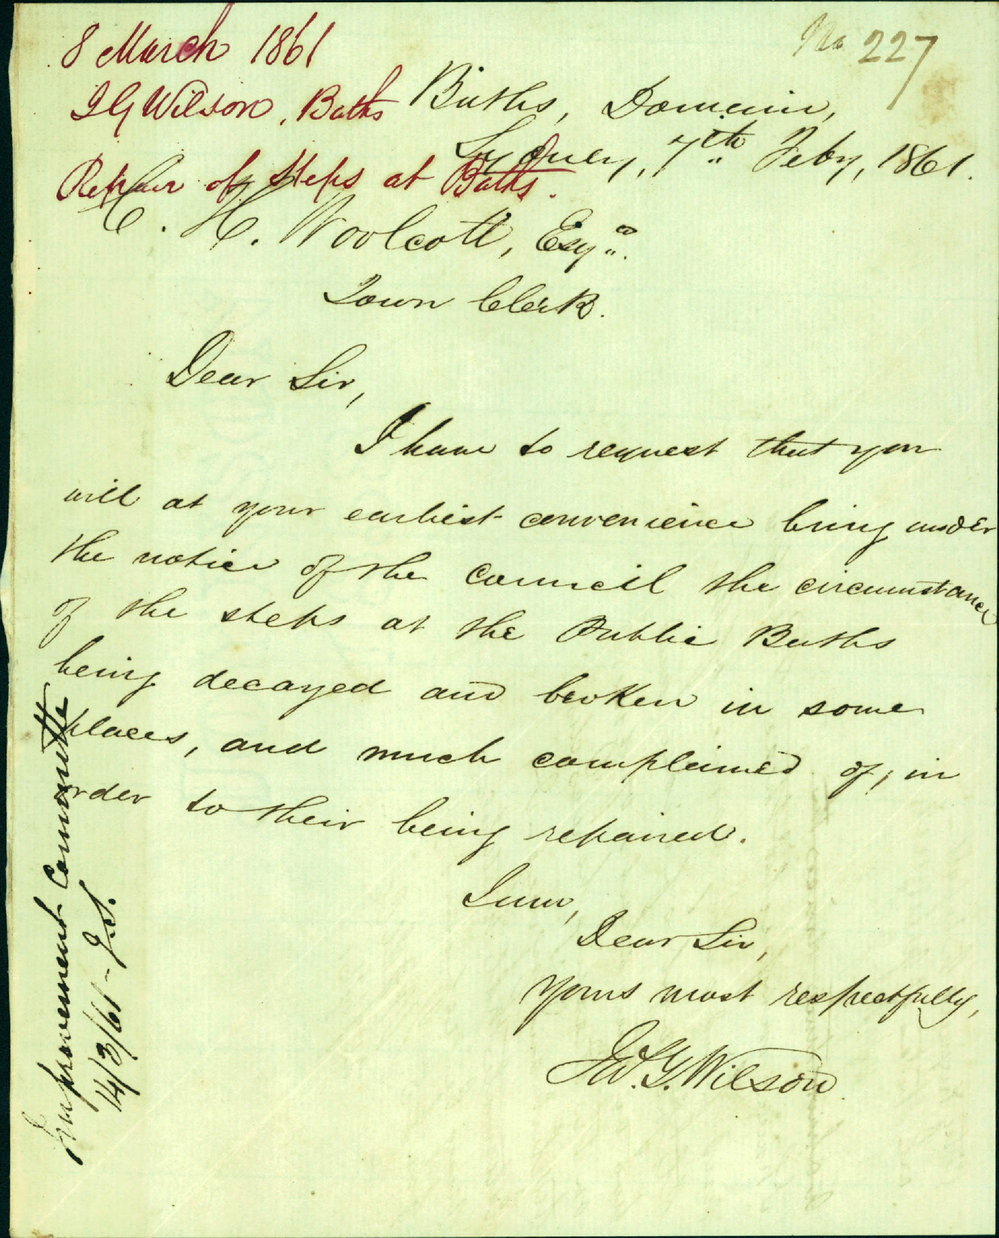 8 March 1861
No 227
J G Wilson, Baths
Baths, Domain,
Sydney, 7th Feby, 1861.
Repair of steps at Baths.
C. H. Woolcott, Esqre.
Town Clerk.
Dear Sir,
I have to request that you
will at your earliest convenience bring under
the notice of the council the circumstance
of the steps at the Public Baths
being decayed and broken in some
places, and much complained of, in
order to their being repaired.
I am,
Dear Sir,
Yours most respectfully,
Jno. G. Wilson
Improvement Committee
14/3/61 - J.S.